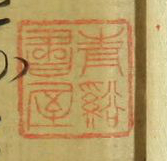 青谿
書屋